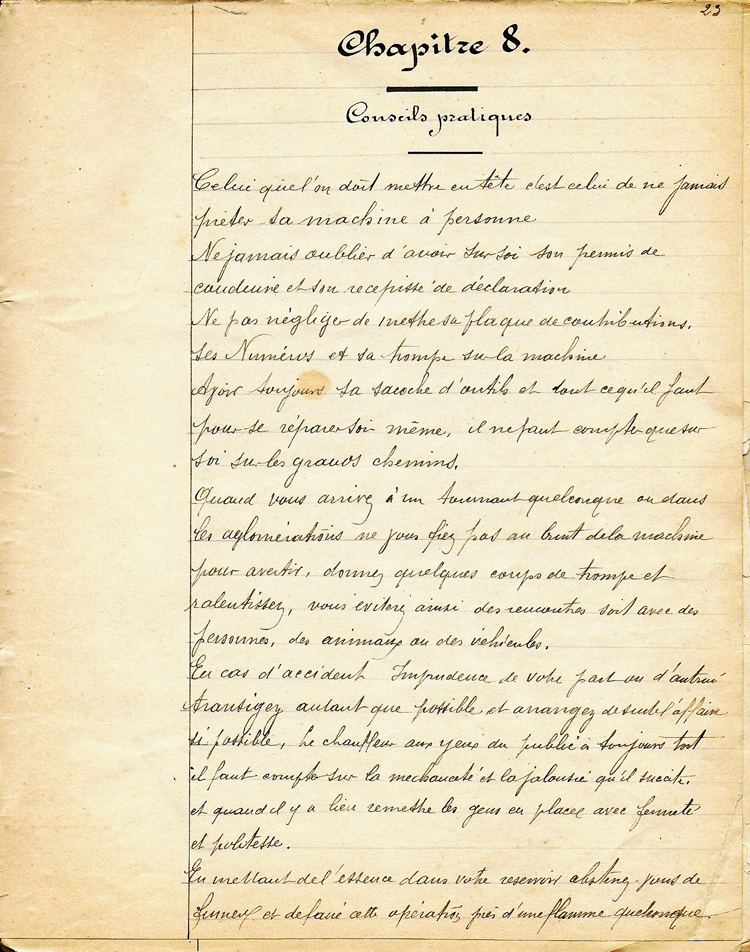 23
Chapitre 8.
Conseils pratiques
Celui que l'on doit mettre en tête c'est celui de ne jamais
prêter sa machine à personne
Ne jamais oublier d'avoir sur soi son permis de
conduire et son recepissé de déclaration
Ne pas négliger de mettre sa plaque de contributions.
ses Numéros et sa trompe sur la machine
Avoir toujours sa sacoche d'outils et tout ce qu'il faut
pour se réparer soi même, il ne faut compter que sur
soi sur les grands chemins.
Quand vous arrivez à un tournant quelconque ou dans
les aglomérations ne vous fiez pas au bruit de la machine
pour avertir, donnez quelques coups de trompe et
ralentissez, vous éviterez ainsi des rencontres soit avec des
personnes, des animaux ou des véhicules.
En cas d'accident Imprudence de votre part ou d'autrui
transigez autant que possible et arrangez de suite l'affaire
si possible, Le chauffeur aux yeux du public à toujours tort
il faut compter sur la mechanceté et la jalousie qu'il sucite.
et quand il y a lieu remettre les gens en place avec fermeté
et politesse.
En mettant de l'essence dans votre reservoir abstenez-vous de
fumer et de faire cette opération près d'une flamme quelconque.